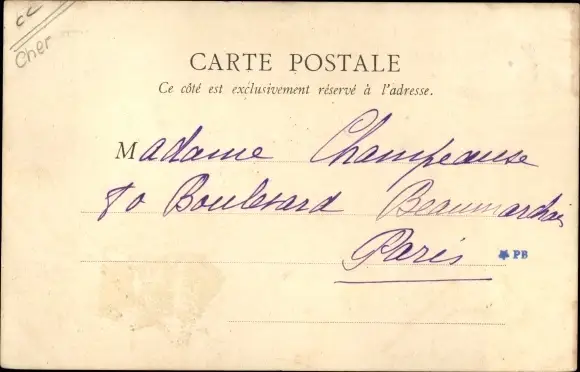 cc
Cher
CARTE POSTALE
Ce côté est exclusivement réservé à l'adresse.
Madame Champeause
80 Boulevard Beaumarchais
Paris
PB